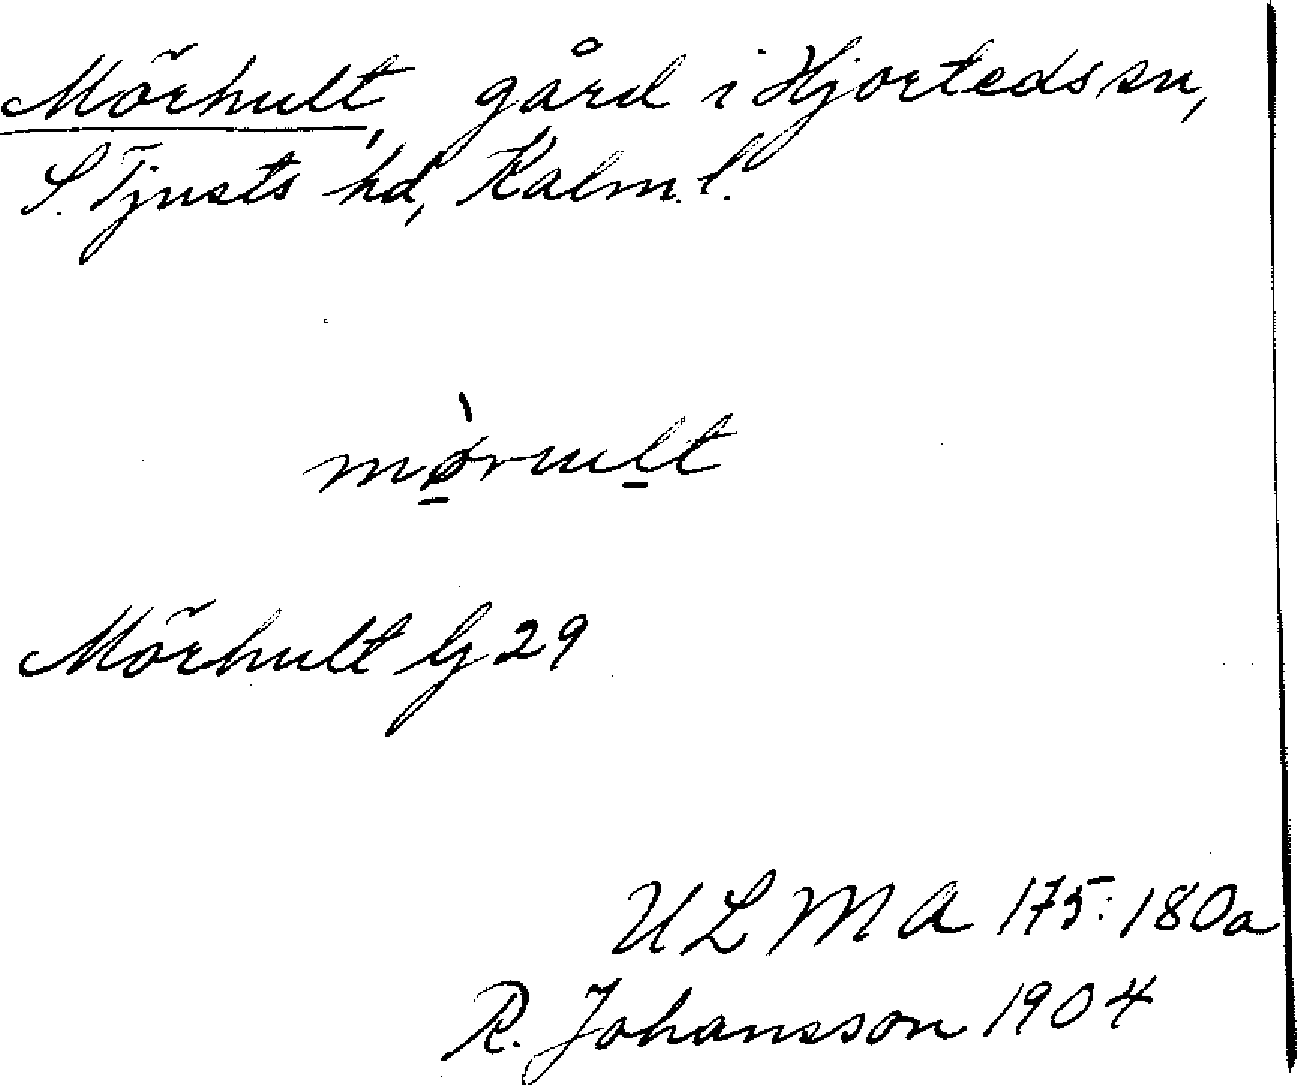 Mörhult, gård i Hjorteds sn,
S. Tjusts hd, Kalm. l.
mø̠̀rul̠t
Mörhult G 29
ULMA 175:180a
R. Johansson 1904